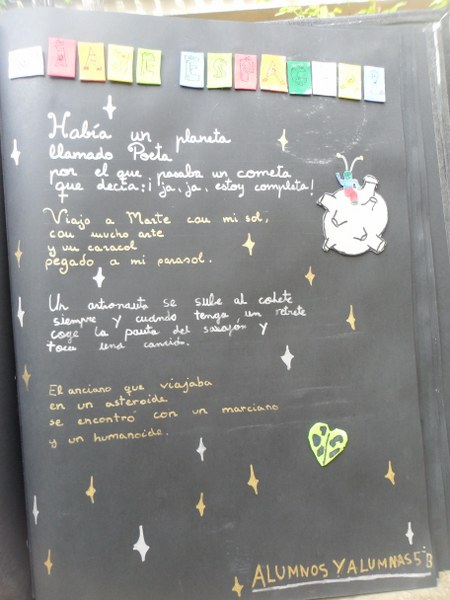 VIAJE ESPACIAL
Había un planeta
llamado Poeta
por el que pasaba un cometa
que decía: ¡ja, ja, estoy completa!
Viajo a Marte con mi sol,
con mucho arte
y un caracol
pegado a mi parasol.
Un astronauta se sube al cohete
siempre y cuando tenga un retrete
coge la pauta del saxofón y
toca una canción.
El anciano que viajaba
en un asteroide
se encontró con un marciano
y un humanoide.
ALUMNOS Y ALUMNAS 5ºB